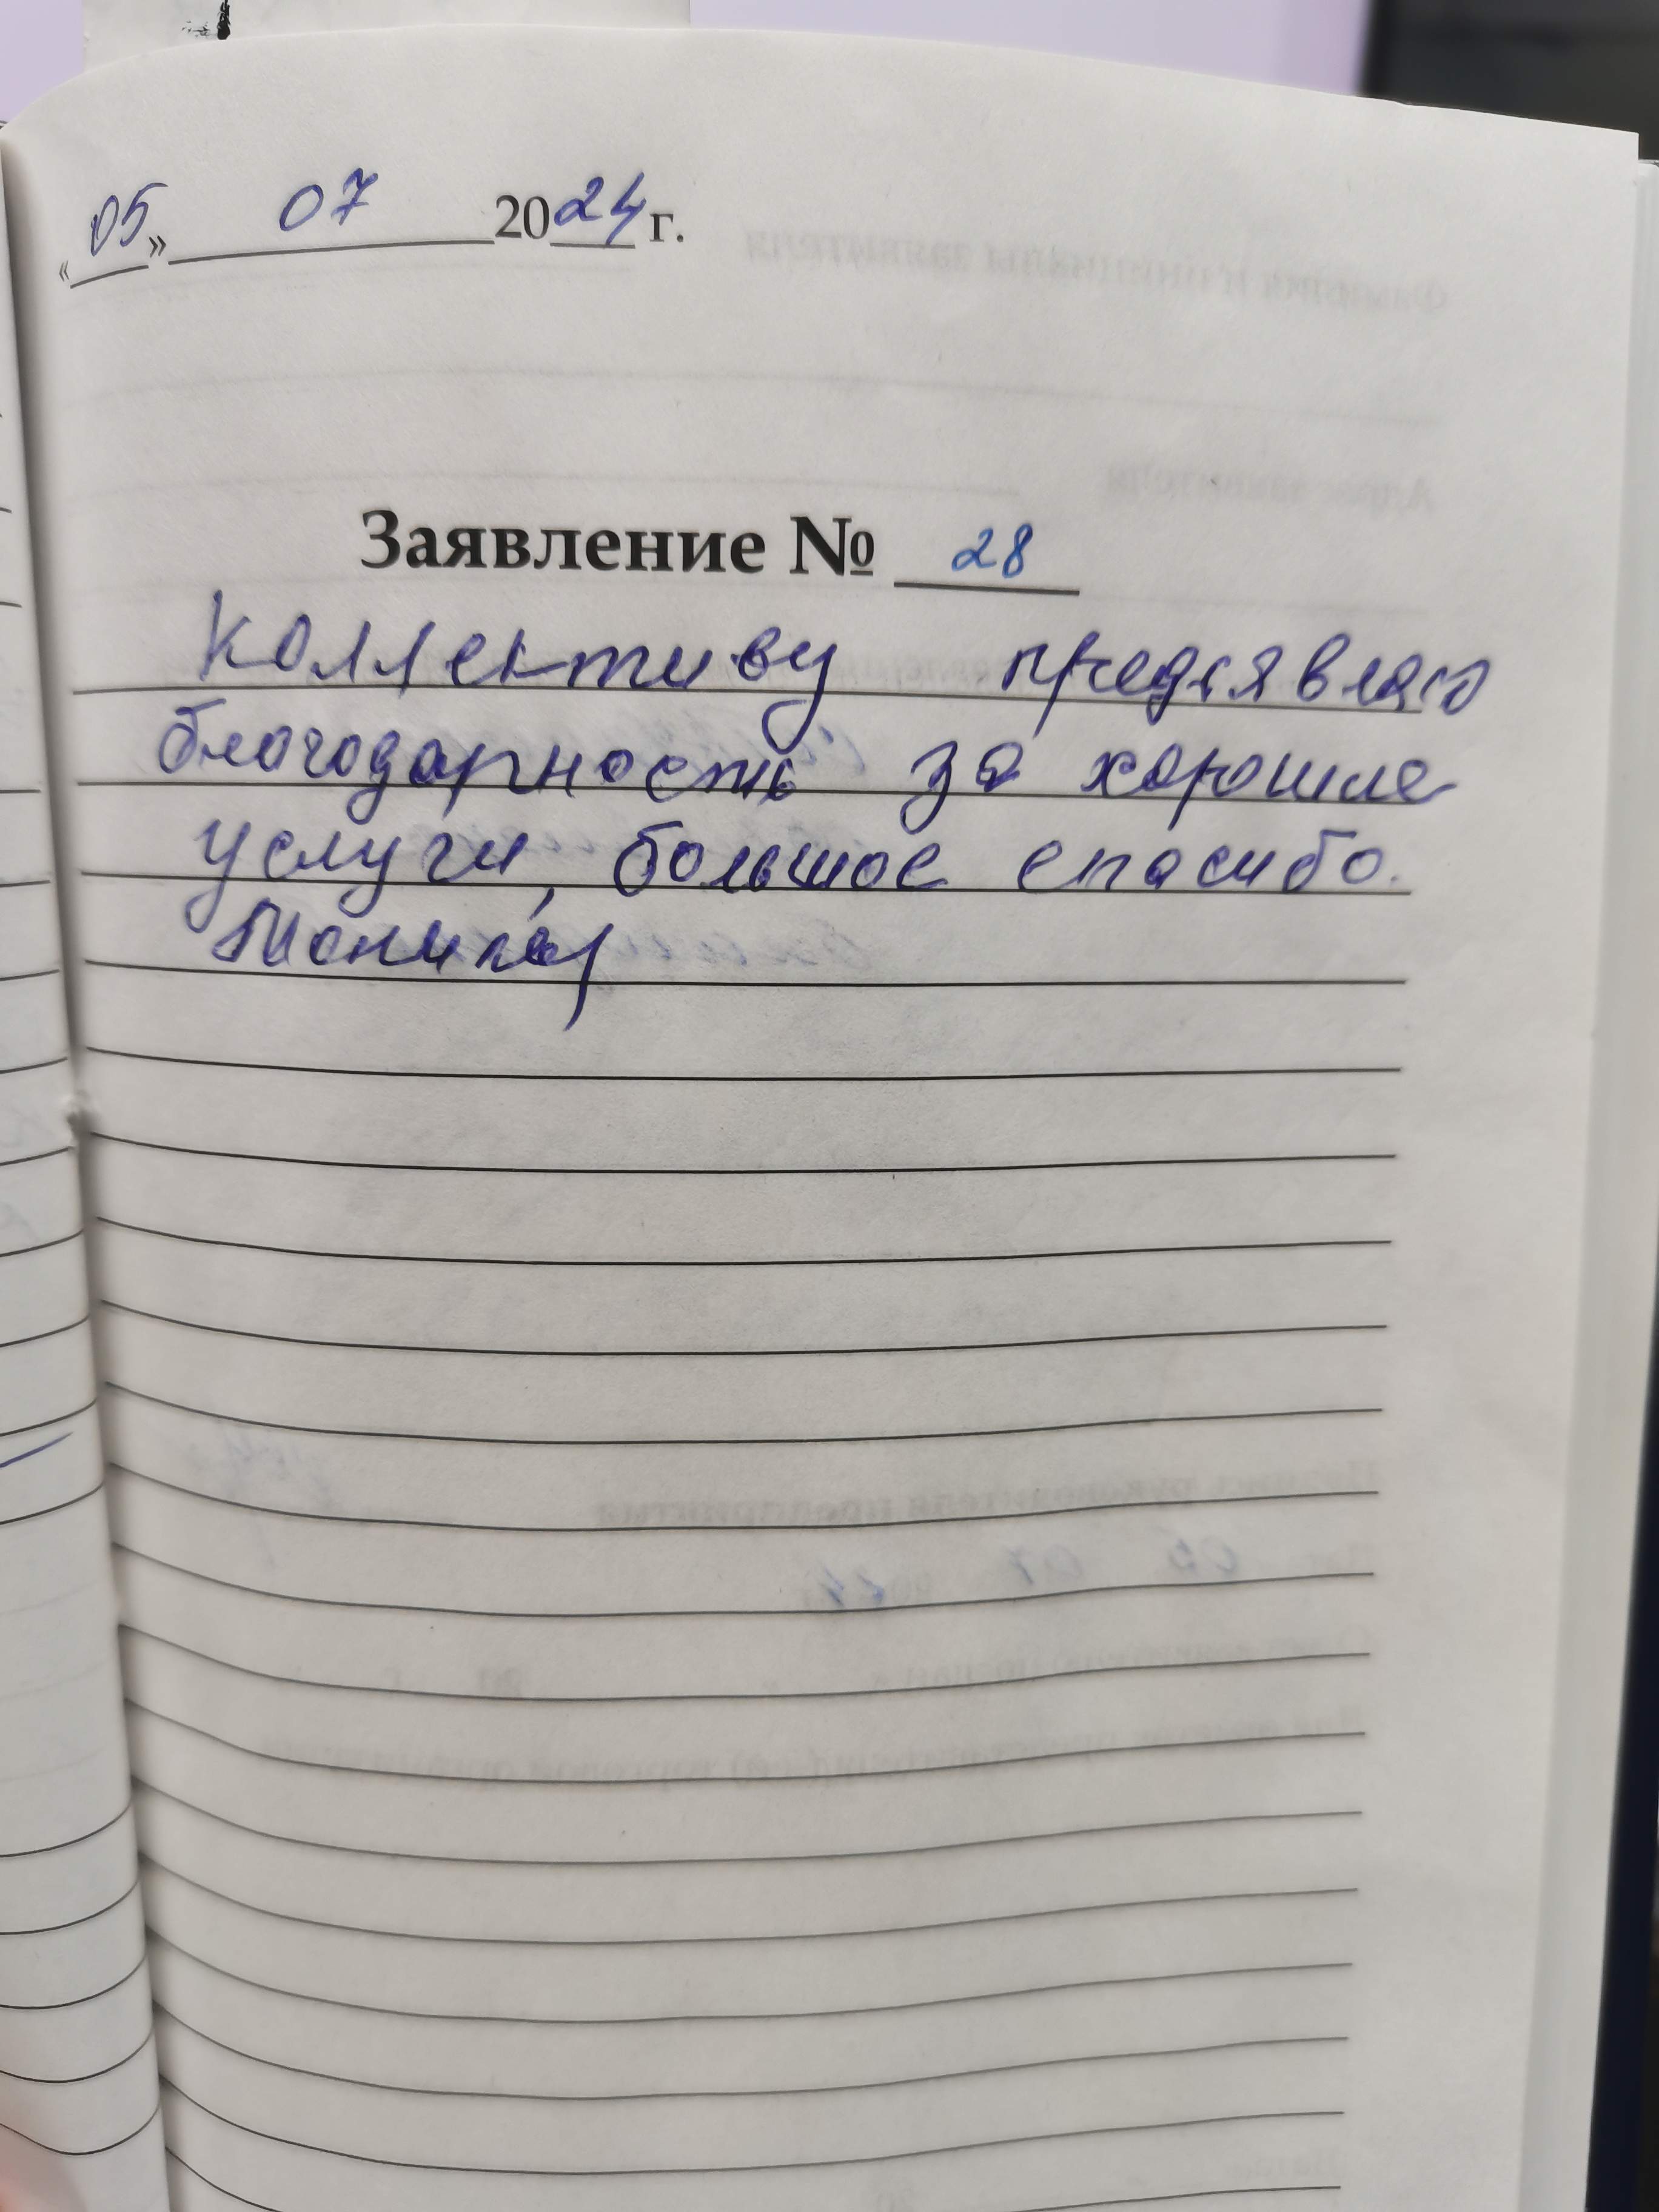 «05» 07 2024 г.
Заявление № 28
Коллективу предъявляю
благодарность за хорошие
услуги, большое спасибо.